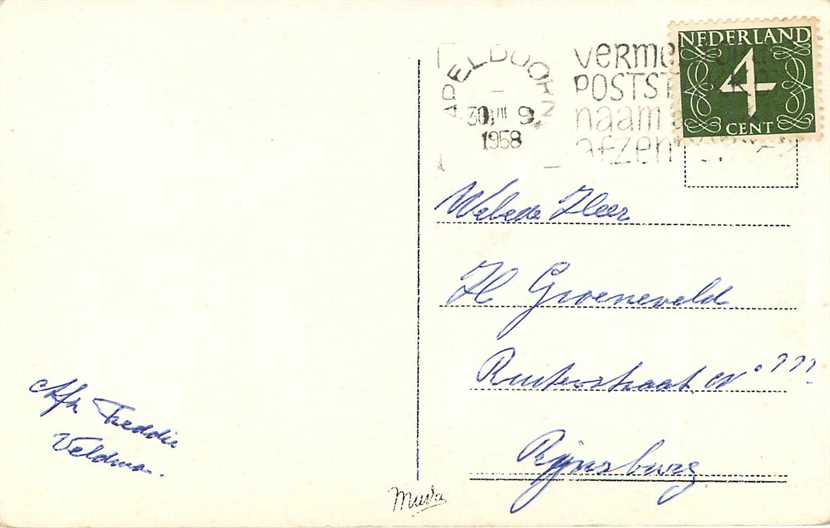 APELDOORN
30 III 9
1958
verme
POSTST
naam
afzen
NEDERLAND
4
CENT
Welede Heer
H Groeneveld
Ruiterstraat N° ???
Rijnsburg
Afz Freddie
Veldma.
Muva